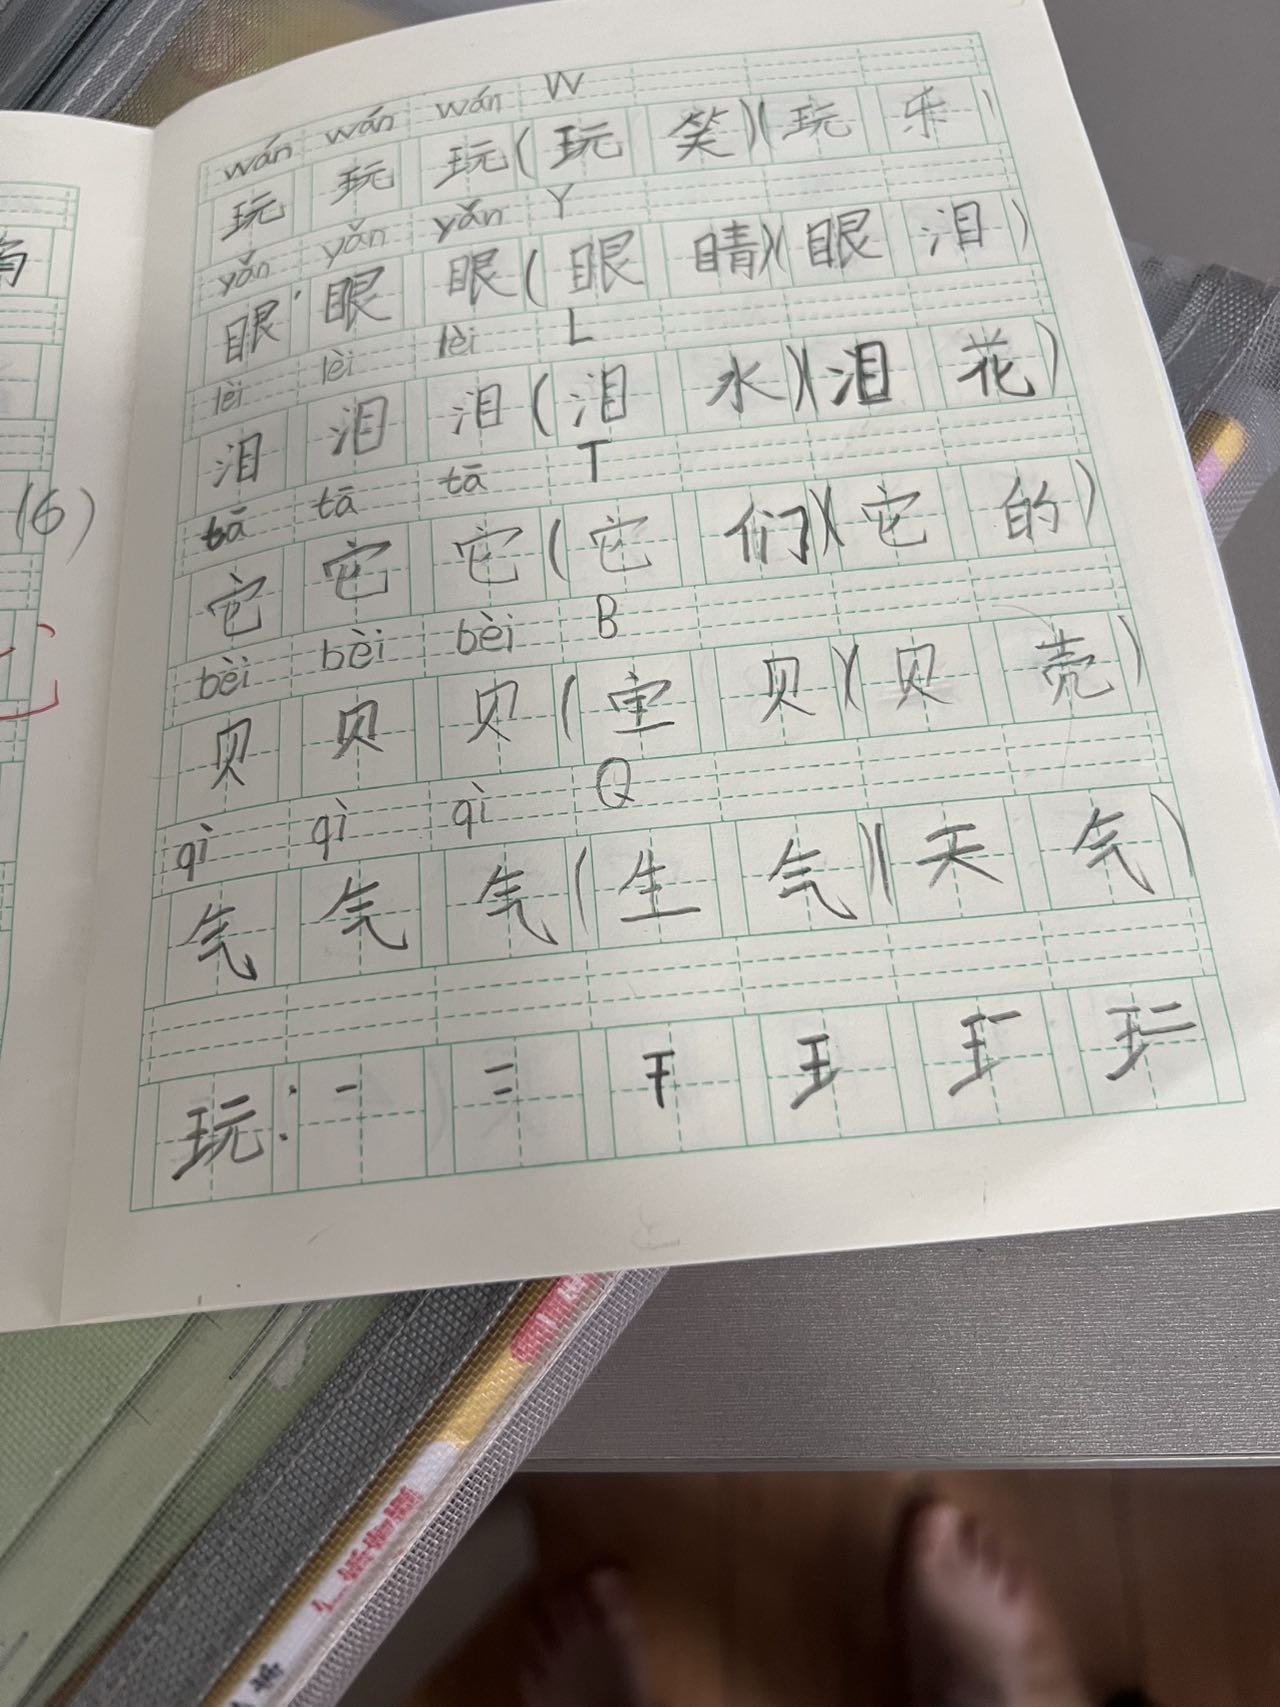 wán wán wán W
玩 玩 玩(玩 笑)(玩 乐)
yǎn yǎn yǎn Y
眼 眼 眼(眼 睛)(眼 泪)
lèi lèi lèi L
泪 泪 泪(泪 水)(泪 花)
tā tā tā T
它 它 它(它 们)(它 的)
bèi bèi bèi B
贝 贝 贝(宝 贝)(贝 壳)
qì qì qì Q
气 气 气(生 气)(天 气)
玩: 一 二 キ 王 王一 王二
(6)